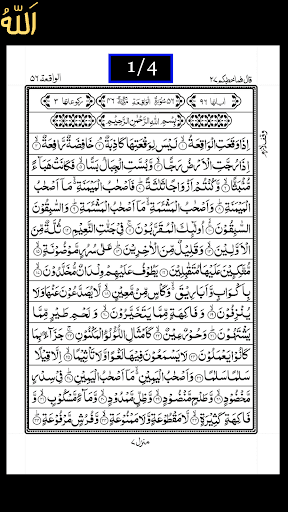 اَللّٰهُ
1/4
قال فماخطبکم ۲۷
الواقعة ۵۶
اِذَا وَقَعَتِ الْوَاقِعَةُ ۙ﴿۱﴾ لَیْسَ لِوَقْعَتِهَا كَاذِبَةٌ ۘ﴿۲﴾ خَافِضَةٌ رَّافِعَةٌ ۙ﴿۳﴾
اِذَا رُجَّتِ الْاَرْضُ رَجًّا ۙ﴿۴﴾ وَّ بُسَّتِ الْجِبَالُ بَسًّا ۙ﴿۵﴾ فَكَانَتْ هَبَآءً
مُّنْۢبَثًّا ۙ﴿۶﴾ وَّ كُنْتُمْ اَزْوَاجًا ثَلٰثَةً ؕ﴿۷﴾ فَاَصْحٰبُ الْمَیْمَنَةِ ۙ۬ مَاۤ اَصْحٰبُ
الْمَیْمَنَةِ ؕ﴿۸﴾ وَ اَصْحٰبُ الْمَشْـَٔمَةِ ۙ۬ مَاۤ اَصْحٰبُ الْمَشْـَٔمَةِ ؕ﴿۹﴾ وَ السّٰبِقُوْنَ
السّٰبِقُوْنَ ﴿ۚۙ۱۰﴾ اُولٰٓىِٕكَ الْمُقَرَّبُوْنَ ﴿ۚ۱۱﴾ فِیْ جَنّٰتِ النَّعِیْمِ ﴿۱۲﴾ ثُلَّةٌ مِّنَ
الْاَوَّلِیْنَ ﴿ۙ۱۳﴾ وَ قَلِیْلٌ مِّنَ الْاٰخِرِیْنَ ﴿ؕ۱۴﴾ عَلٰی سُرُرٍ مَّوْضُوْنَةٍ ﴿ۙ۱۵﴾
مُّتَّكِـِٕیْنَ عَلَیْهَا مُتَقٰبِلِیْنَ ﴿۱۶﴾ یَطُوْفُ عَلَیْهِمْ وِلْدَانٌ مُّخَلَّدُوْنَ ﴿ۙ۱۷﴾
بِاَكْوَابٍ وَّ اَبَارِیْقَ ۙ۬ وَ كَاْسٍ مِّنْ مَّعِیْنٍ ﴿ۙ۱۸﴾ لَّا یُصَدَّعُوْنَ عَنْهَا وَ لَا
یُنْزِفُوْنَ ﴿ۙ۱۹﴾ وَ فَاكِهَةٍ مِّمَّا یَتَخَیَّرُوْنَ ﴿ۙ۲۰﴾ وَ لَحْمِ طَیْرٍ مِّمَّا
یَشْتَهُوْنَ ﴿ؕ۲۱﴾ وَ حُوْرٌ عِیْنٌ ﴿ۙ۲۲﴾ كَاَمْثَالِ اللُّؤْلُؤِ الْمَكْنُوْنِ ﴿ۚ۲۳﴾ جَزَآءًۢ بِمَا
كَانُوْا یَعْمَلُوْنَ ﴿۲۴﴾ لَا یَسْمَعُوْنَ فِیْهَا لَغْوًا وَّ لَا تَاْثِیْمًا ﴿ۙ۲۵﴾ اِلَّا قِیْلًا
سَلٰمًا سَلٰمًا ﴿۲۶﴾ وَ اَصْحٰبُ الْیَمِیْنِ ۙ۬ مَاۤ اَصْحٰبُ الْیَمِیْنِ ﴿ؕ۲۷﴾ فِیْ سِدْرٍ
مَّخْضُوْدٍ ﴿ۙ۲۸﴾ وَّ طَلْحٍ مَّنْضُوْدٍ ﴿ۙ۲۹﴾ وَّ ظِلٍّ مَّمْدُوْدٍ ﴿ۙ۳۰﴾ وَّ مَآءٍ مَّسْكُوْبٍ ﴿ۙ۳۱﴾ وَّ
فَاكِهَةٍ كَثِیْرَةٍ ﴿ۙ۳۲﴾ لَّا مَقْطُوْعَةٍ وَّ لَا مَمْنُوْعَةٍ ﴿ۙ۳۳﴾ وَّ فُرُشٍ مَّرْفُوْعَةٍ ﴿ؕ۳۴﴾
اٰیاتها ۹۶
۵۶ سُوْرَةُ الْوَاقِعَةِ مَکِّیَّةٌ ۴۶
رکوعاتها ۳
بِسْمِ اللّٰهِ الرَّحْمٰنِ الرَّحِیْمِ
وقف لازم
منزل ۷